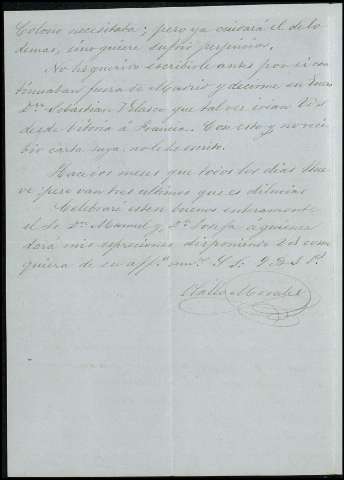 Colono necesitaba; pero ya cuidará él de lo
demas, si no quiere sufrir perjuicios.
No he querido escribirle antes por si con
tinuaban fuera de Madrid y decirme en
Dn. Sebastian Velasco que tal vez irian Vds
desde Vitoria a Francia. Con esto y no reci
bir carta suya, no le he escrito.
Hace dos meses que todos los dias llue
ve pero van tres ultimos que es diluvio.
Celebraré esten buenos enteramente
el Sr. Dn. Manuel y Da. á quienes
dará mis espresiones disponiendo Vd. como
quiera de su aff.º am.º S. S. Q. B. S. M.
Morales